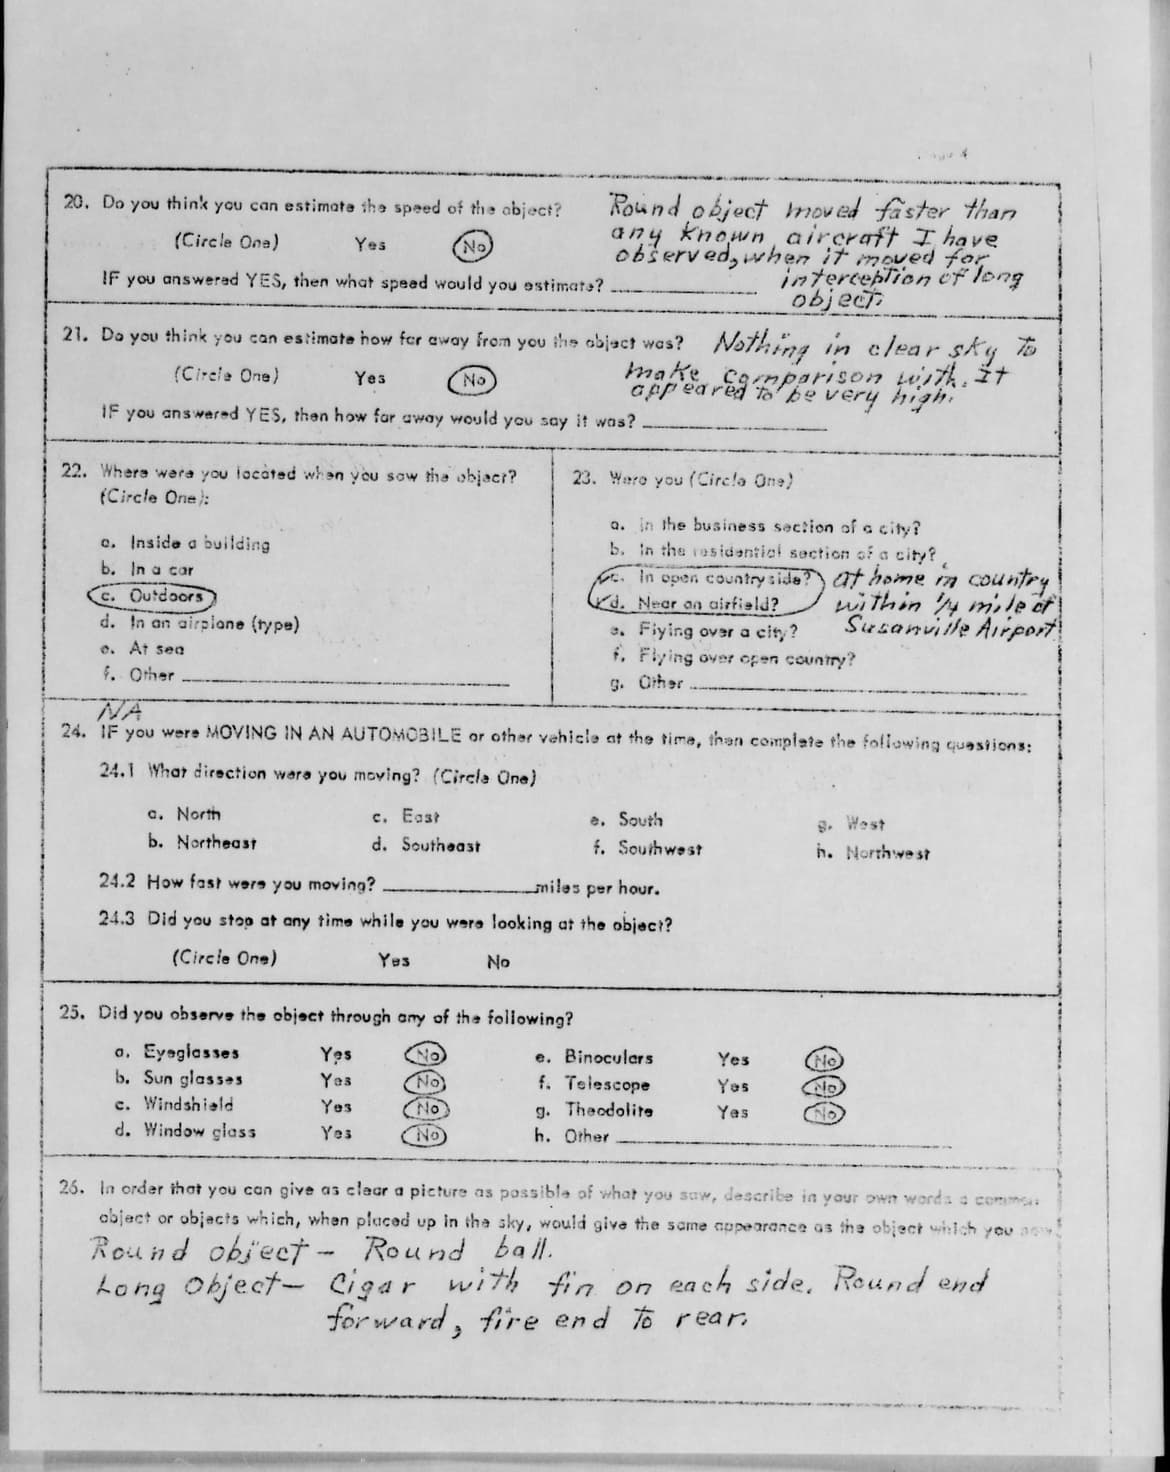 20. Do you think you can estimate the speed of the object?
(Circle One) Yes No
IF you answered YES, then what speed would you estimate?
Round object moved faster than
any known aircraft I have
observed, when it moved for
interception of long
object.
21. Do you think you can estimate how far away from you the object was?
(Circle One) Yes No
IF you answered YES, then how far away would you say it was?
Nothing in clear sky to
make comparison with. It
appeared to be very high.
22. Where were you located when you saw the object?
(Circle One):
a. Inside a building
b. In a car
c. Outdoors
d. In an airplane (type)
e. At sea
f. Other
23. Were you (Circle One)
a. In the business section of a city?
b. In the residential section of a city?
c. In open countryside?
d. Near an airfield?
e. Flying over a city?
f. Flying over open country?
g. Other
at home in country
within 1/4 mile of
Susanville Airport
NA
24. IF you were MOVING IN AN AUTOMOBILE or other vehicle at the time, then complete the following questions:
24.1 What direction were you moving? (Circle One)
a. North c. East e. South g. West
b. Northeast d. Southeast f. Southwest h. Northwest
24.2 How fast were you moving? miles per hour.
24.3 Did you stop at any time while you were looking at the object?
(Circle One) Yes No
25. Did you observe the object through any of the following?
a. Eyeglasses Yes No e. Binoculars Yes No
b. Sun glasses Yes No f. Telescope Yes No
c. Windshield Yes No g. Theodolite Yes No
d. Window glass Yes No h. Other
26. In order that you can give as clear a picture as possible of what you saw, describe in your own words a common
object or objects which, when placed up in the sky, would give the same appearance as the object which you saw.
Round object - Round ball.
Long Object - Cigar with fin on each side. Round end
forward, fire end to rear.